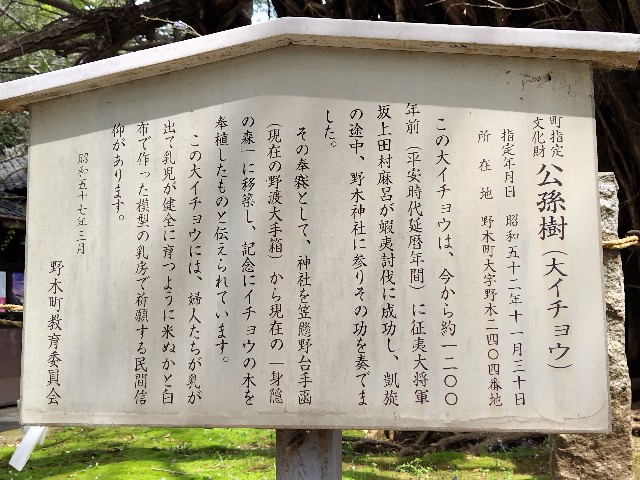 町指定
文化財
公孫樹(大イチョウ)
指定年月日 昭和五十二年十一月三十日
所在地 野木町大字野木二四〇四番地
この大イチョウは、今から約一二〇〇
年前(平安時代延暦年間)に征夷大将軍
坂上田村麻呂が蝦夷討伐に成功し、凱旋
の途中、野木神社に参りその功を奏でま
した。
その奉賽として、神社を笠懸野台手函
(現在の野渡大手箱)から現在の「身隠
の森」に移築し、記念にイチョウの木を
奉植したものと伝えられています。
この大イチョウには、婦人たちが乳が
出て乳児が健全に育つように米ぬかと白
布で作った模型の乳房で祈願する民間信
仰があります。
昭和五十七年三月
野木町教育委員会